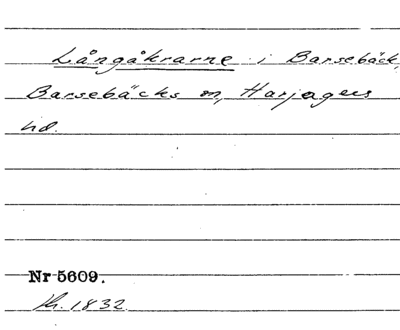 Långåkrarne i Barsebäck,
Barsebäcks sn, Harjagers
hd.
Nr 5609.
1832